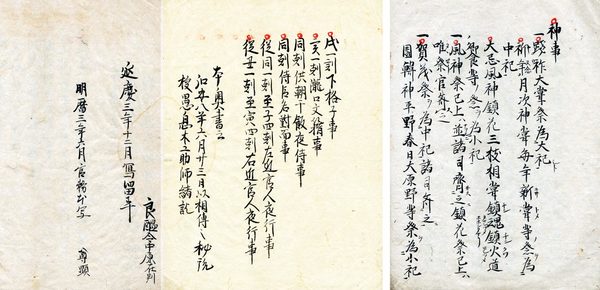 神事
一踐祚大嘗祭為大祀
祈年月次神嘗新嘗等祭為
中祀
大忌風神鎮花三枝相嘗鎮魂鎮火道
饗等祭為小祀
風神祭已上並諸司齋之鎮花祭已上
唯祭官齋之
一賀茂祭為中祀諸司齋之
園韓神平野春日大原野等祭為小祀
戌一刻下格子事
一亥一刻瀧口事
同刻供朝干飯夜侍事
同刻侍臣名對面事
從同一刻至子四刻左近官人夜行事
從丑一刻至寅四刻右近官人夜行事
本奥書云
弘安八年六月廿三日以相傳之秘説
授愚息木工助師緒訖
延慶三年十二月寫留畢
良醞令中原
明暦三年六月官務本写